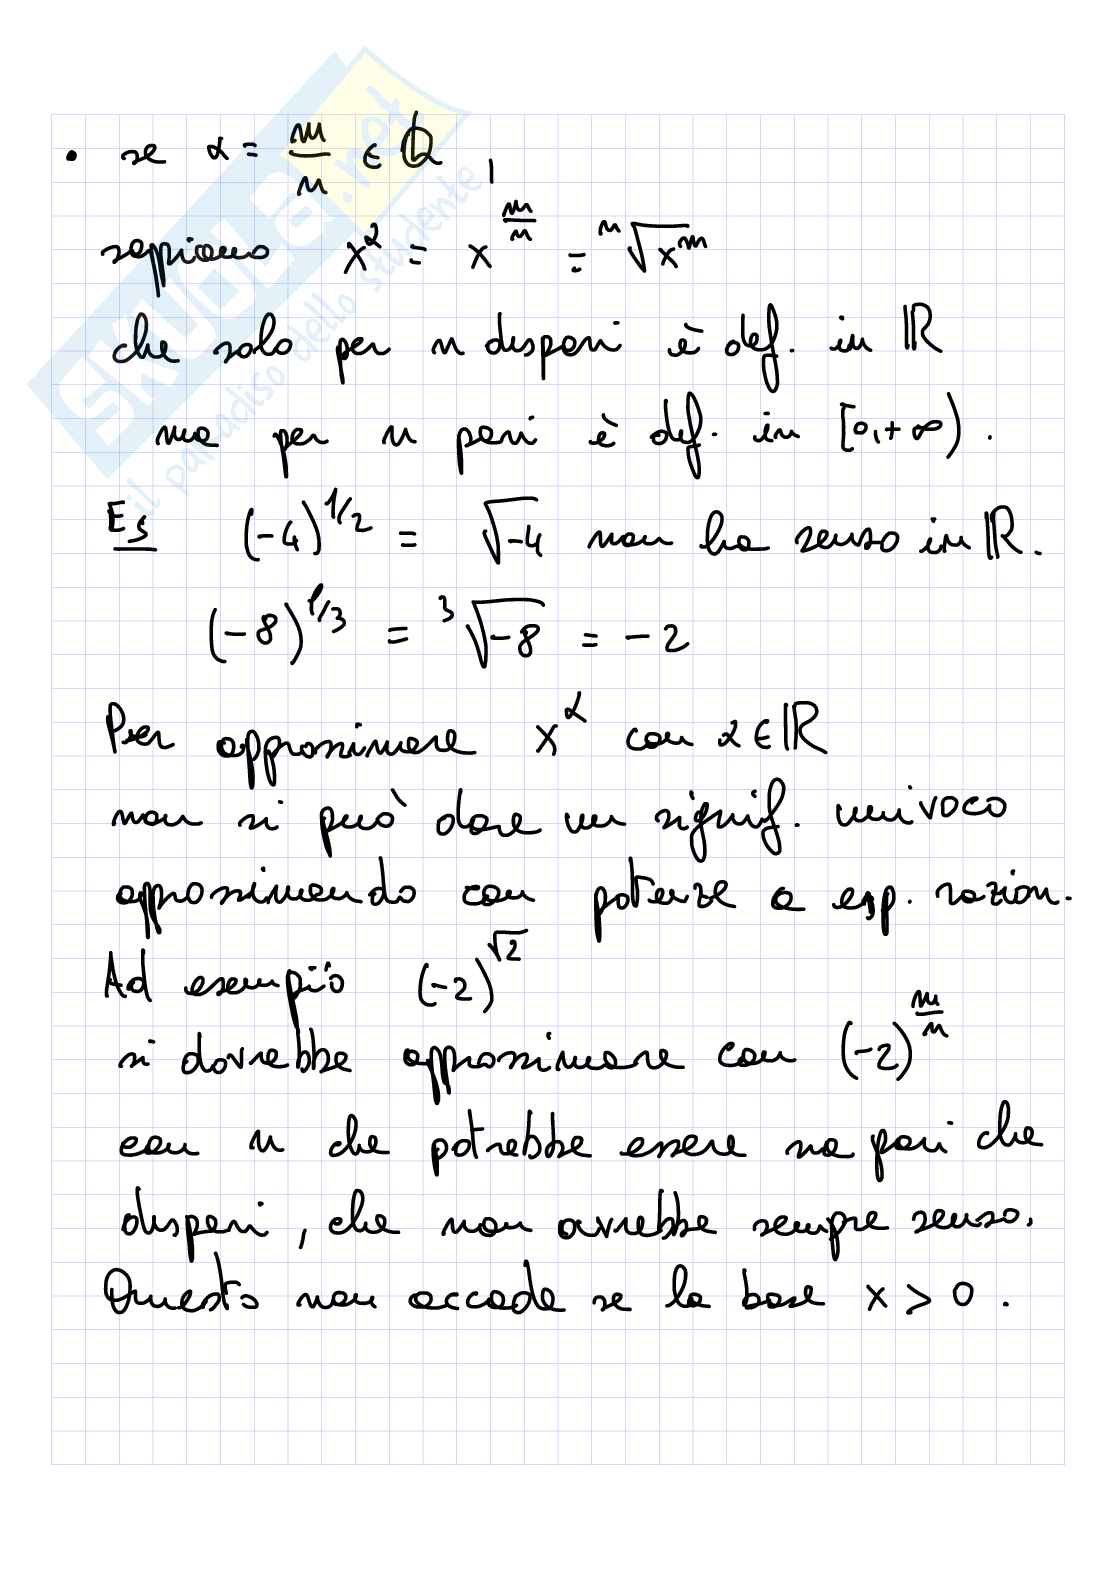 • se α = m/n ∈ ℚ,
sappiamo x^α = x^(m/n) = ⁿ√x^m
che solo per n dispari è def. in ℝ
ma per n pari è def. in [0,+∞).
Es (-4)^1/2 = √-4 non ha senso in ℝ.
(-8)^1/3 = ³√-8 = -2
Per approssimare x^α con α ∈ ℝ
non si può dare un signif. univoco
approssimando con potenze a esp. razion.
Ad esempio (-2)^√2
si dovrebbe approssimare con (-2)^(m/n)
con n che potrebbe essere sia pari che
dispari, che non avrebbe sempre senso.
Questo non accade se la base x > 0.
SKUOLA.net
il paradiso dello studente